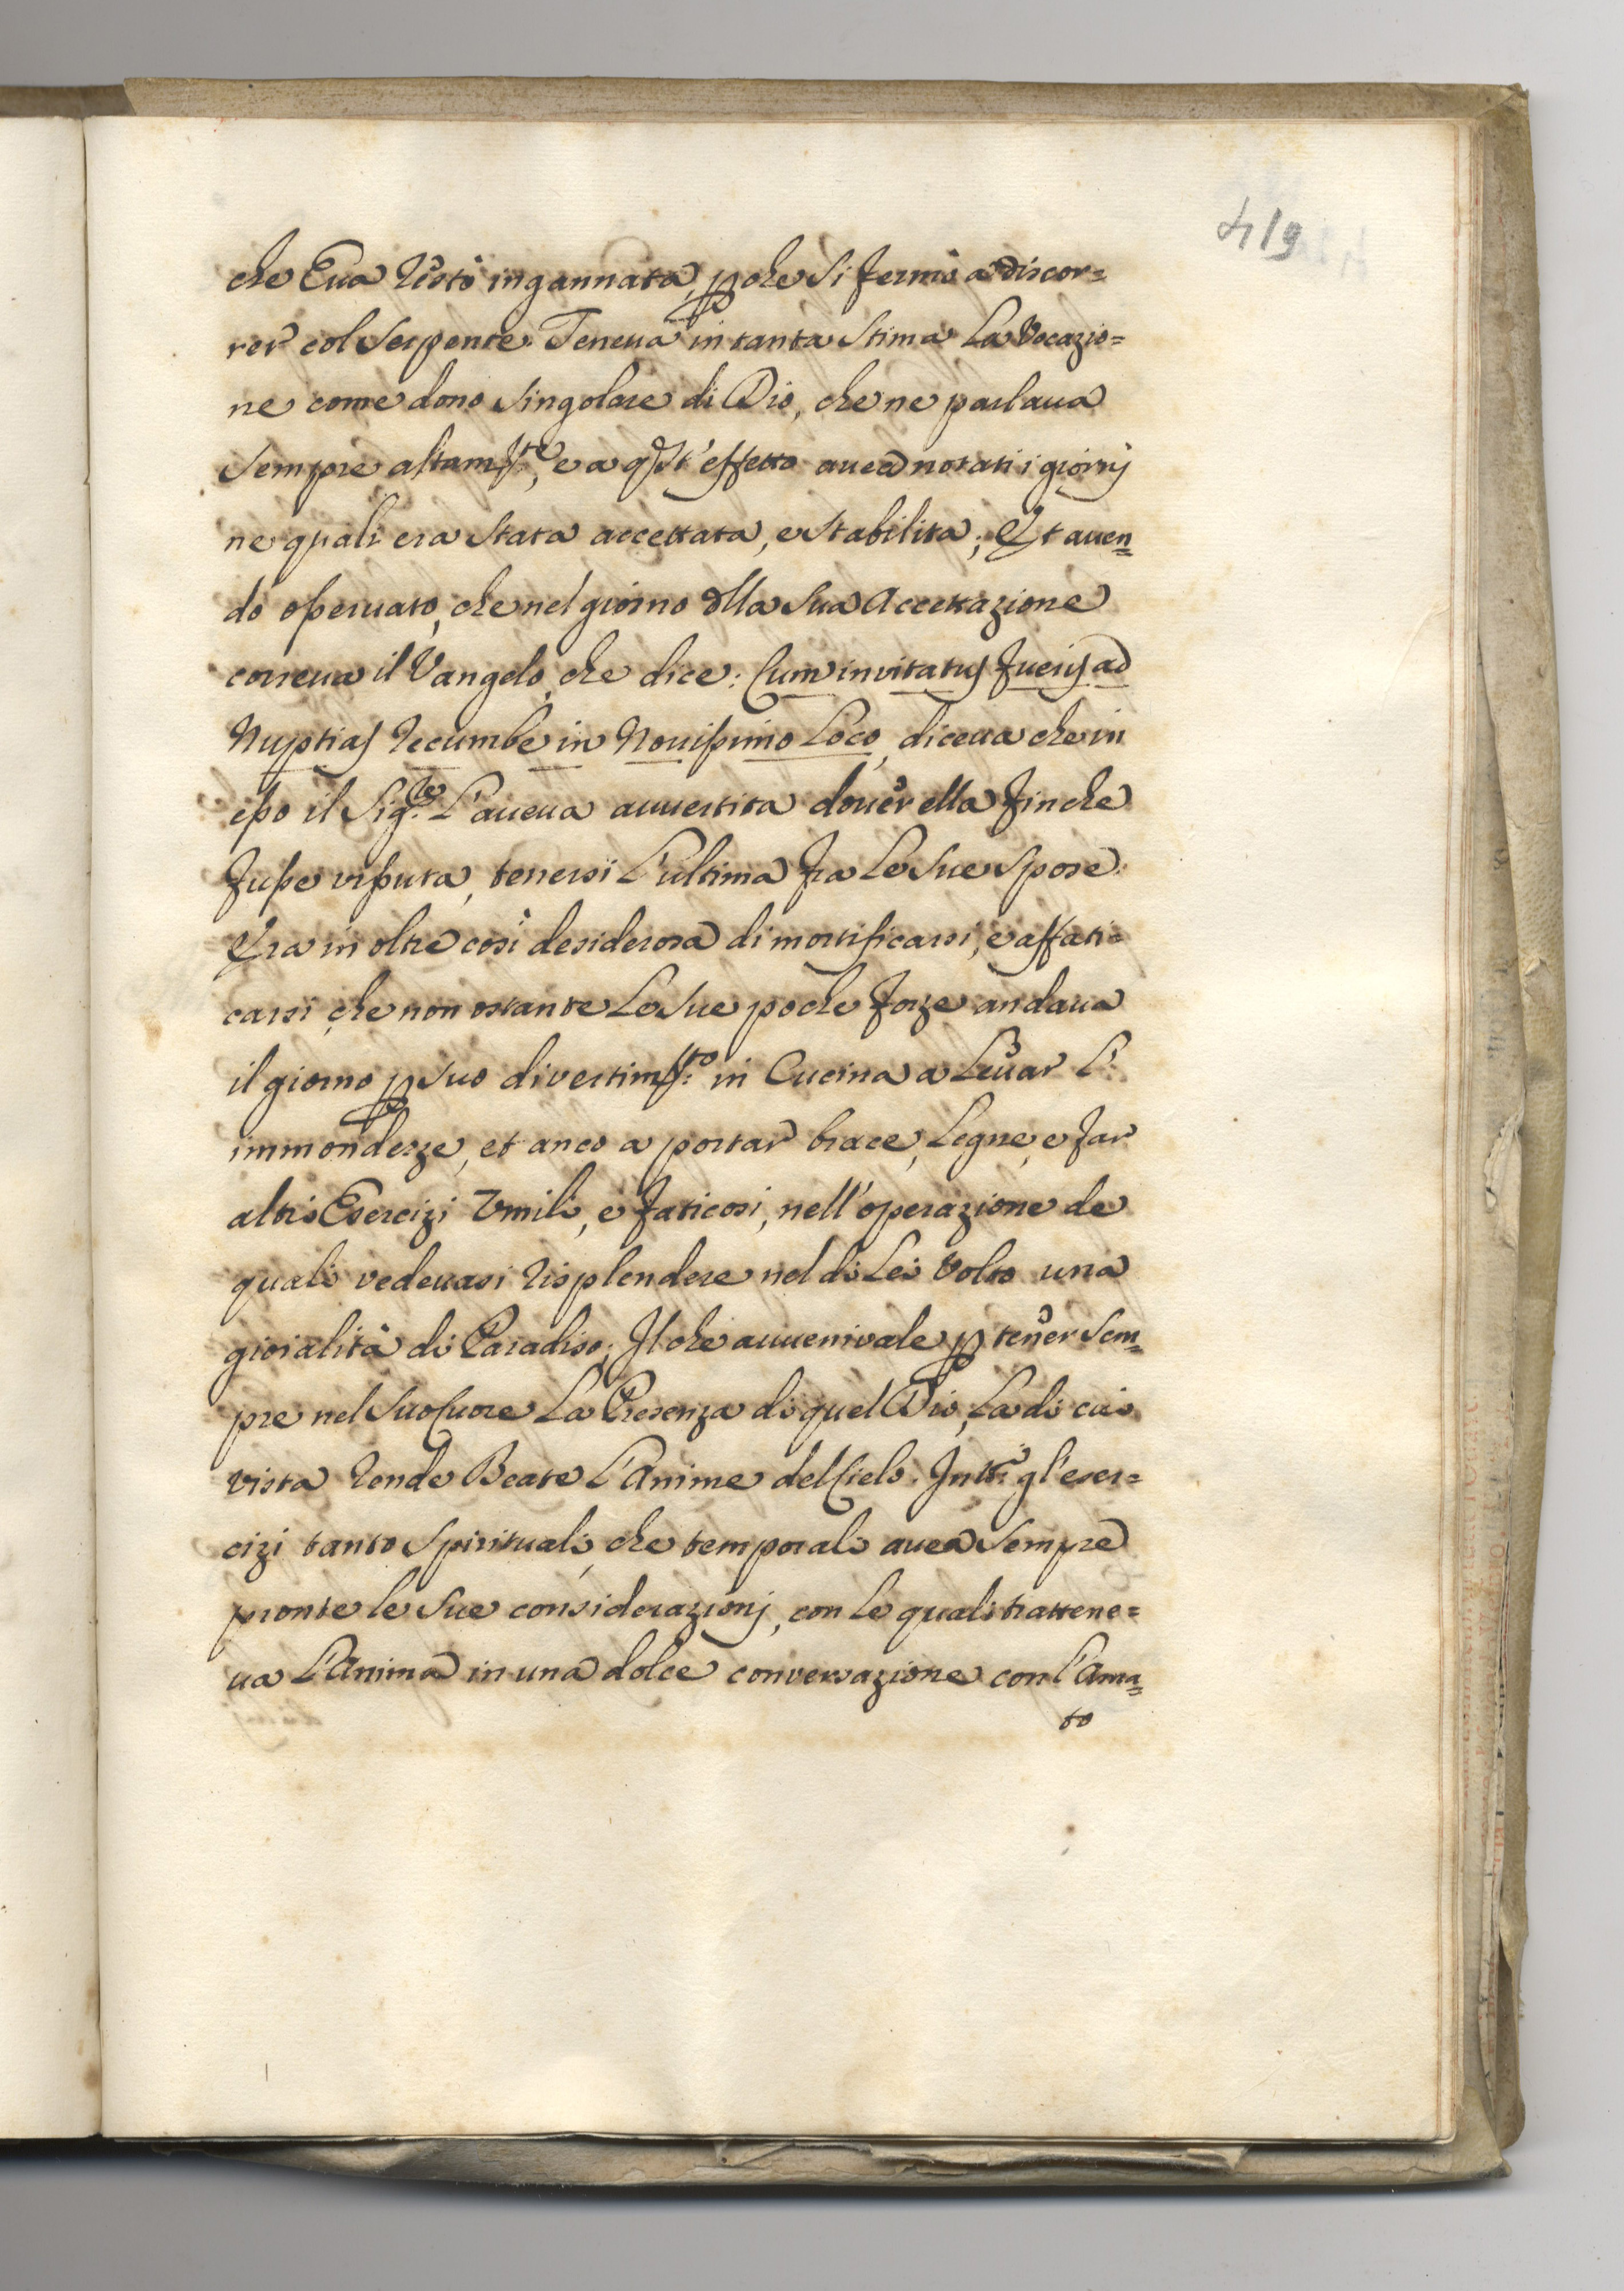 419
che Eua restò ingannata, pche si fermò a discor=
rer col Serpente. Teneua in tanta Stima La Vocazio=
ne come dono singolare di Dio, che ne parlaua
sempre altamte, e a qst'effetto auea notati i giorni
ne quali era stata accettata, e stabilita; Et auen=
do osseruato, che nel giorno dlla sua Accettazione
correua il Vangelo, che dice: Cum invitatus fueris ad
Nuptias recumbe in Nouissimo Loco, diceua che in
esso il Sigre. L'aueua auuertita douer ella finche
fusse vissuta, tenersi L'ultima fra Le sue Spose.
Era in oltre così desiderosa di mortificarsi, e affati=
carsi che non ostante Le sue poche forze andaua
il giorno p suo divertimto: in Cucina a Leuar L'
immondezze, et anco a portar brace, Legne, e far
altri Esercizi Vmili, e faticosi, nell'operazione de
quali vedeuasi risplendere nel di Lei Volto una
giovialità di Paradiso; Il che auuenivale p tener sem=
pre nel suo Cuore La Presenza di quel Dio, La di cui
vista rende Beate L'Anime del Cielo. In tti: gl'eser=
cizi tanto Spirituali, che temporali auea sempre
pronte le sue considerazionj, con Le quali trattene=
ua L'Anima in una dolce conversazione con l'Ama=
to